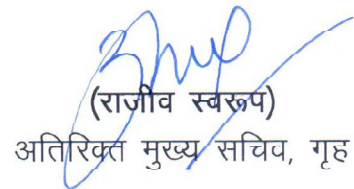 (राजीव स्वरूप)
अतिरिक्त मुख्य सचिव, गृह